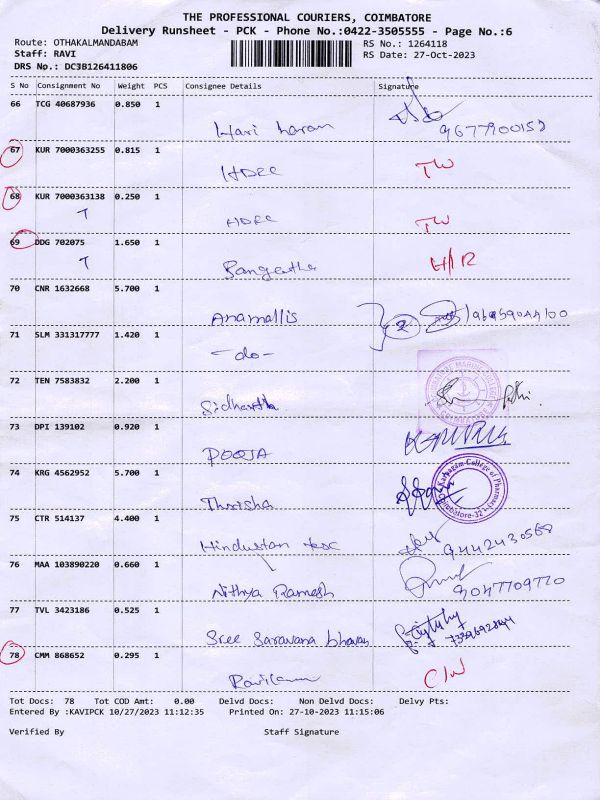 THE PROFESSIONAL COURIERS, COIMBATORE
Delivery Runsheet - PCK - Phone No.:0422-3505555 - Page No.:6
Route: OTHAKALMANDABAM RS No.: 1264118
Staff: RAVI RS Date: 27-Oct-2023
DRS No.: DC3B126411806
S No Consignment No Weight PCS Consignee Details Signature
66 TCG 40687936 0.850 1
Hari haran 9677900152
67 KUR 7000363255 0.815 1
HDFC TW
68 KUR 7000363138 0.250 1
T HDFC TW
69 DDG 702075 1.650 1
T Sangeetha H/R
70 CNR 1632668 5.700 1
Anamallis 2
71 SLM 331317777 1.420 1
-do-
72 TEN 7583832 2.200 1
Sidhartha
73 DPI 139102 0.920 1
POOJA
74 KRG 4562952 5.700 1
Karpagam College of Pharmacy
Coimbatore-32
Thrisha
75 CTR 514137 4.400 1
Hindustan 9442430568
76 MAA 103890220 0.660 1
Nithya Ramesh 9047709770
77 TVL 3423186 0.525 1
Sree Saravana bhavan
78 CMM 868652 0.295 1
C/W
Tot Docs: 78 Tot COD Amt: 0.00 Delvd Docs: Non Delvd Docs: Delvy Pts:
Entered By :KAVIPCK 10/27/2023 11:12:35 Printed On: 27-10-2023 11:15:06
Verified By Staff Signature